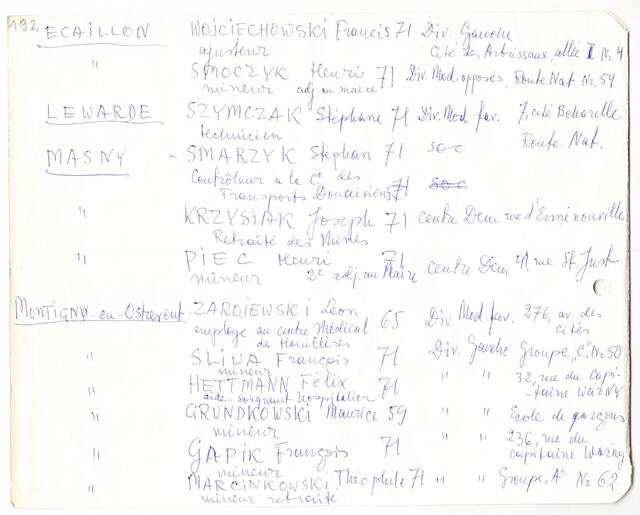 192
ECAILLON WOJCIECHOWSKI Francis 71 Div. Gauche
ajusteur Cité des Arbrissaux, allée I Nr. 4
" SMOCZYK Henri 71 Div. Mod. opposés, Route Nat Nr. 54
mineur adj. au maire
LEWARDE SZYMCZAK Stéphane 71 Div. Mod. fav. 7, cité Beharelle
technicien Route Nat.
MASNY - SMARZYK Stéphan 71 soc
Contrôleur à la Cie des
Transports Douaisiens 71 soc
" KRZYSIAK Joseph 71 centre Dem. rue d'Ermenouville
Retraité des Mines
" PIEC Henri 71 centre Dem 41, rue St. Just
mineur 2e adj. au Maire
MONTIGNY-en-Ostrevent ZAROJEWSKI Léon 65 Div. Mod. fav. 276, av. des
employé au centre Médical cités
des Houillères
" SLIWA François 71 Div. Gauche Groupe "C" Nr. 50
mineur
" HETTMANN Félix 71 " " 32, rue du Capi-
aide-soignant hospitalier taine WARNY
" GRUNDKOWSKI Maurice 59 " " Ecole de garçons
mineur
" GAPIK François 71 " " 236, rue du
mineur capitaine Warny
" MARCINKOWSKI Théophile 71 " " Groupe "A" Nr 62
mineur retraité